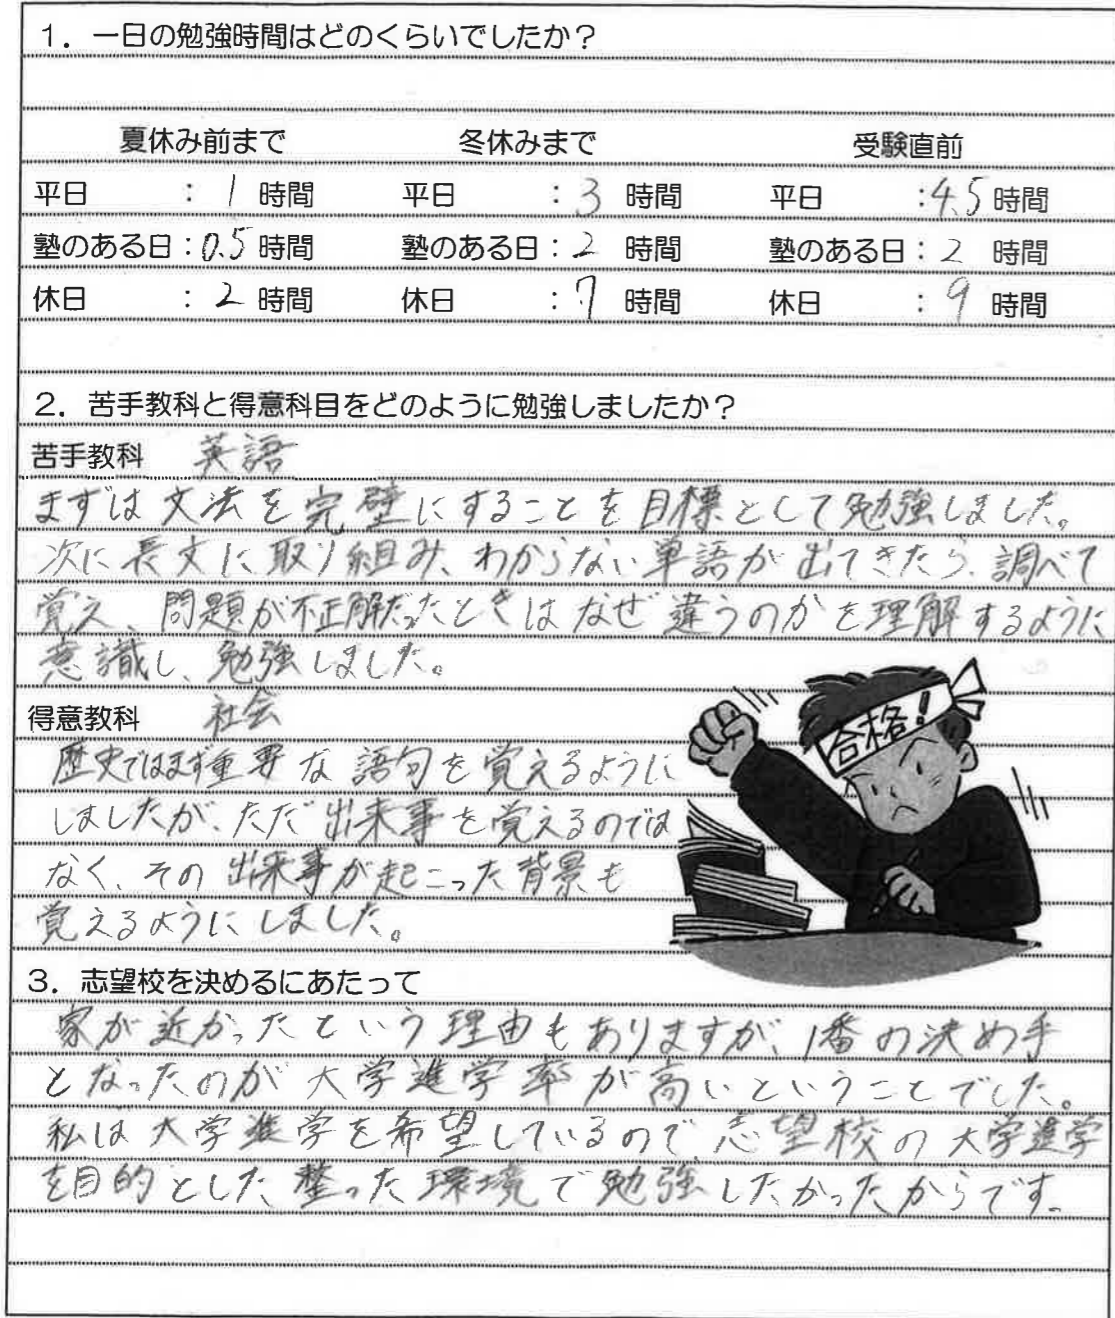 1．一日の勉強時間はどのくらいでしたか？
夏休み前まで 冬休みまで 受験直前
平日 ：1 時間 平日 ：3 時間 平日 ：4.5 時間
塾のある日：0.5 時間 塾のある日：2 時間 塾のある日：2 時間
休日 ：2 時間 休日 ：7 時間 休日 ：9 時間
2．苦手教科と得意科目をどのように勉強しましたか？
苦手教科 英語
まずは文法を完璧にすることを目標として勉強しました。
次に長文に取り組み、わからない単語が出てきたら、調べて
覚え、問題が不正解だったときはなぜ違うのかを理解するように
意識し、勉強しました。
得意教科 社会
歴史ではまず重要な語句を覚えるように
しましたが、ただ出来事を覚えるのでは
なく、その出来事が起こった背景も
覚えるようにしました。
合格！
3．志望校を決めるにあたって
家が近かったという理由もありますが、1番の決め手
となったのが大学進学率が高いということでした。
私は大学進学を希望しているので、志望校の大学進学
を目的とした整った環境で勉強したかったからです。